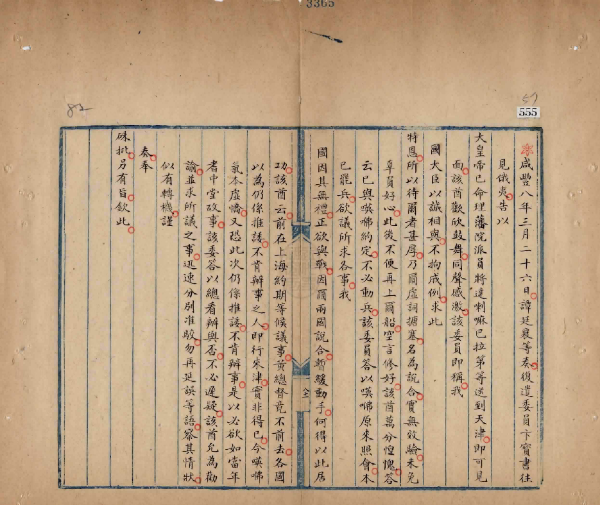 3365
82
57
555
咸豐八年三月二十六日譚廷襄等奏復遣委員卞寶書往
見俄夷告以
大皇帝已命理藩院派員將達喇嘛巴拉第等送到天津即可見
面該酋歡欣鼓舞同聲感激該委員即稱我
國大臣以誠相與不拘成例求此
特恩所以待爾者甚厚乃爾虛詞搪塞名為說合實無效驗未免
辜負好心此後不便再上爾船空言修好該酋萬分惶愧答
云已與嘆咈約定不必動兵該委員答以嘆咈原來照會本
已罷兵欲議所求各事我
國因其無禮正欲與戰因爾兩國說合暫緩動手何得以此居
功該酋云前在上海約期等候議事黃總督竟不前去各國
以為仍係推諉不肯辦事之人即行來津實非得已今嘆咈
氣本虛憍又恐此次仍係推諉不肯辦事是以必欲如當年
耆中堂故事該委答以總看辦與否不必遲疑該酋允為勸
諭並求所議之事迅速分別准駁勿再延誤等語察其情狀
似有轉機謹
奏奉
硃批另有旨欽此